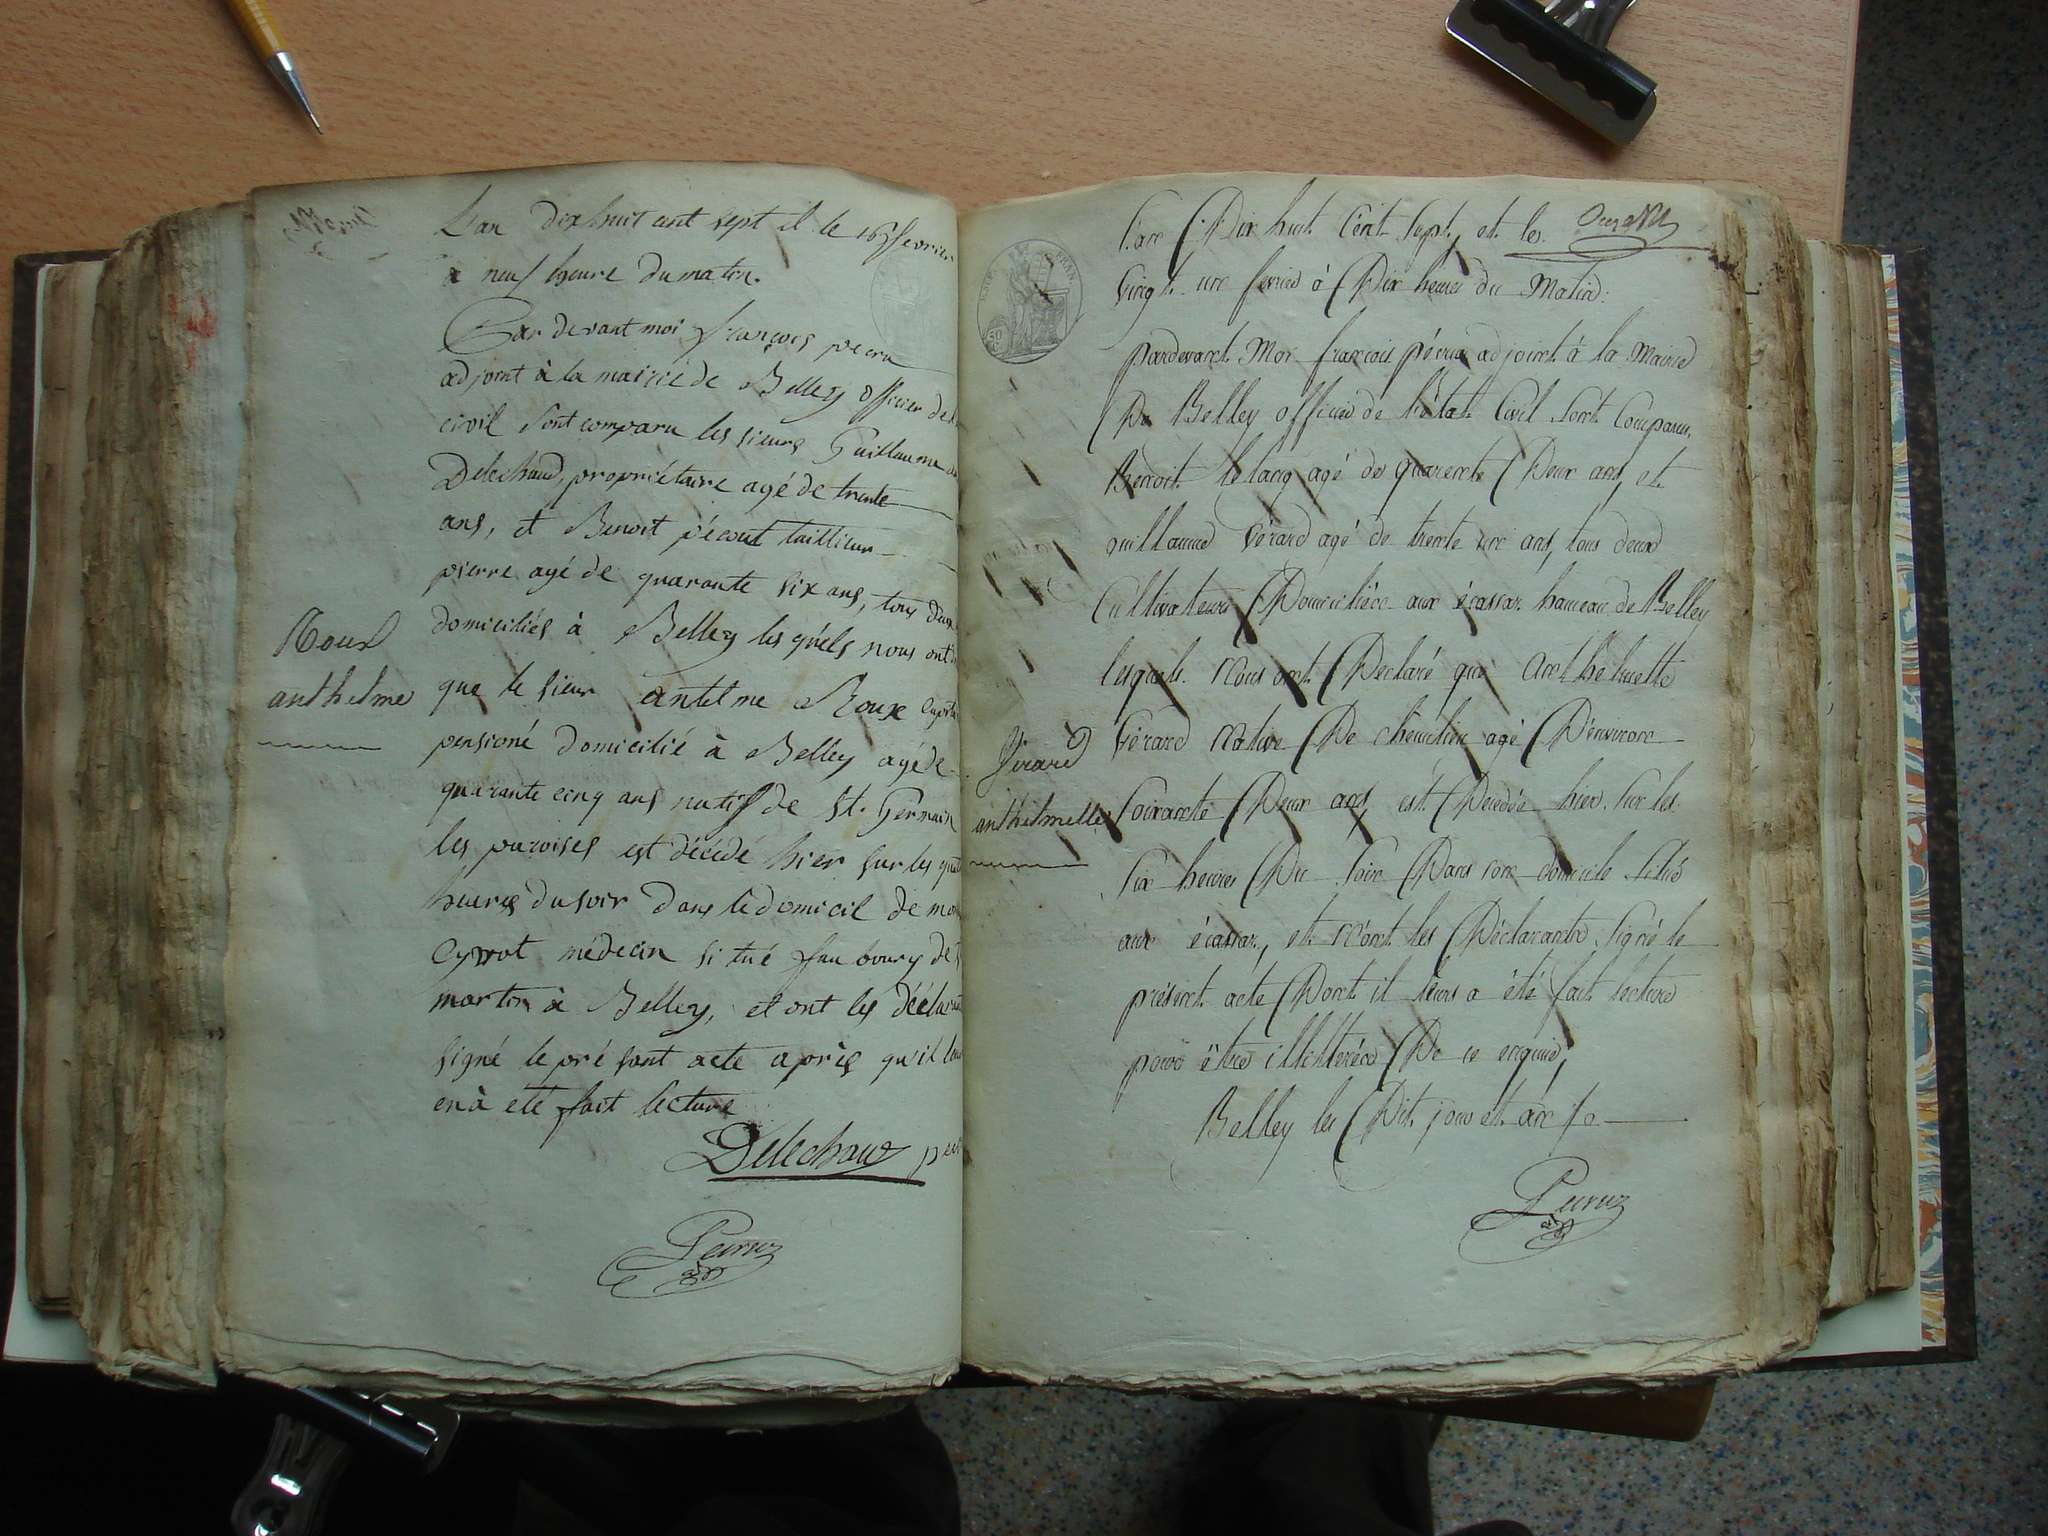 L'an dix huit cent sept et le 16 fevrier
à neuf heure du matin.
Par devant moi françois pecru
adjoint à la mairie de Belley officier de
civil sont comparu les sieurs Guillaume
Delechaud, propriétaire agé de trente
ans, et Benoit pécout tailleur
pierre agé de quarante six ans, tous deux
domiciliés à Belley les quels nous ont
que le sieur antelme Roux
pensioné domicilié à Belley agé de
quarante cinq ans natif de St. Germain
les paroises est décédé hier sur les
heures du soir dans le domicil de
Cyvot médecin situé faubourg de
martin à Belley, et ont les
signé le présant acte après qu'il
en à eté fait lecture
Delechaud
Pecruz
Roux
anthelme
L'an Dix huit Cent Sept et le
Vingt un fevrier à Dix heures du Matin
pardevant Moi françois pécruz adjoint à la Mairie
De Belley officier de l'état Civil Sont Comparu
Benoit letang agé de quarente Deux ans, et
guillaume Vérard agé de trente un ans, tous deux
Cultivateurs Domiciliées aux écassaz hameau de Belley
lesquels Nous ont Declaré que Anthelmette
Vérard Native De agé D'environ
Soixante Deux ans, est Decedée hier Sur les
Six heures Du Soir Dans son domicile Situé
aux écassaz, et N'ont les Déclarants Signé le
présent acte Dont il leurs a été fait lecture
pour être illettérées De ce enquis,
Belley les Dit jour et an
Pecruz
Virard
anthelmette